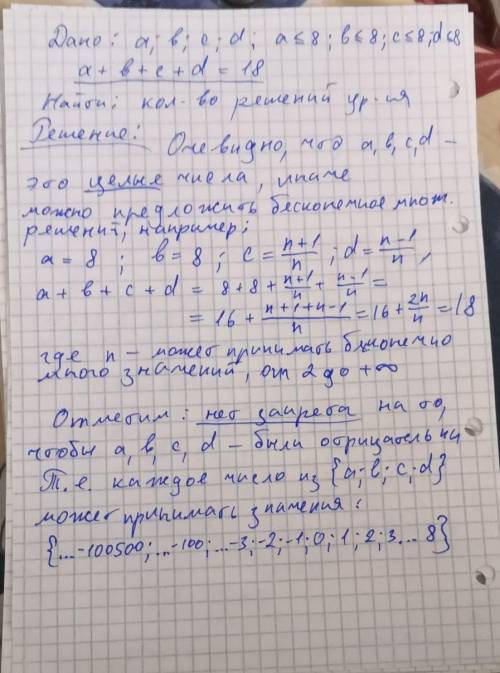 Дано: a; b; c; d; a≤8; b≤8; c≤8; d≤8
a + b + c + d = 18
Найти: кол-во решений ур-ия
Решение: Очевидно, что a, b, c, d –
это целые числа, иначе
можно предложить бесконечное множ.
решений, например:
a = 8 ; b = 8 ; c = (n+1)/n ; d = (n-1)/n ,
a + b + c + d = 8 + 8 + (n+1)/n + (n-1)/n =
= 16 + (n+1+n-1)/n = 16 + 2n/n = 18
где n – может принимать бесконечно
много значений, от 2 до +∞
Отметим: нет запрета на то,
чтобы a, b, c, d – были отрицательны
Т.е. каждое число из {a; b; c; d}
может принимать значения:
{...-100500; ...-100; ...-3; -2; -1; 0; 1; 2; 3... 8}